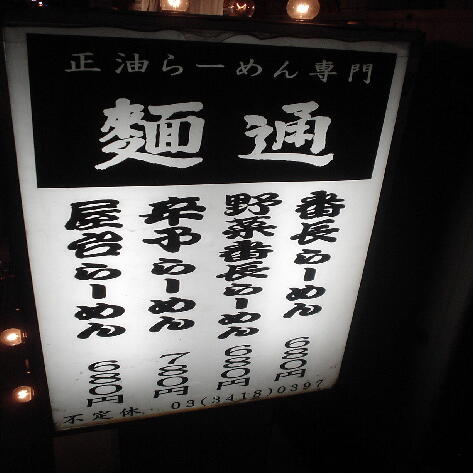 正油らーめん専門
麺通
番長らーめん 680円
野菜番長らーめん 680円
辛子らーめん 780円
屋台らーめん 680円
03(3418)0397
不定休